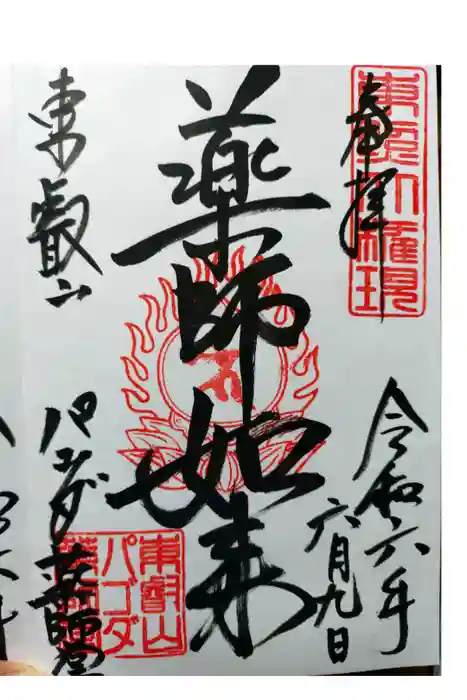 奉拝
東照大権現
令和六年
六月九日
薬師如来
東叡山
パゴダ薬師堂
東叡山
パゴダ
薬師堂